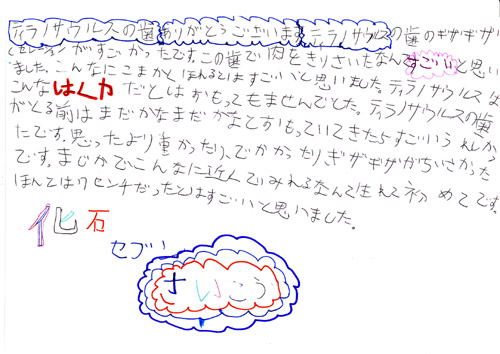 ティラノサウルスの歯ありがとうございます。ティラノサウルスの歯のギザギザ
(セレーション)がすごかったです。この歯で肉をきりさいたなんてすごいと思い
ました。こんなにこまかくほれるとはすごいと思いました。ティラノサウルスは
こんなはくカだとはおもってもませんでした。ティラノサウルスの歯
がとる前はまだかなまだかなとおもっていてきたらすごいうれしかっ
たです。思ったより重かったり、でかかったり、ギザギザがちいさかった
です。まじかでこんなに近くでみれるなんて生れて初めてです。
ほんては7センチだったとはすごいと思いました。
化石
セブい
さいこう